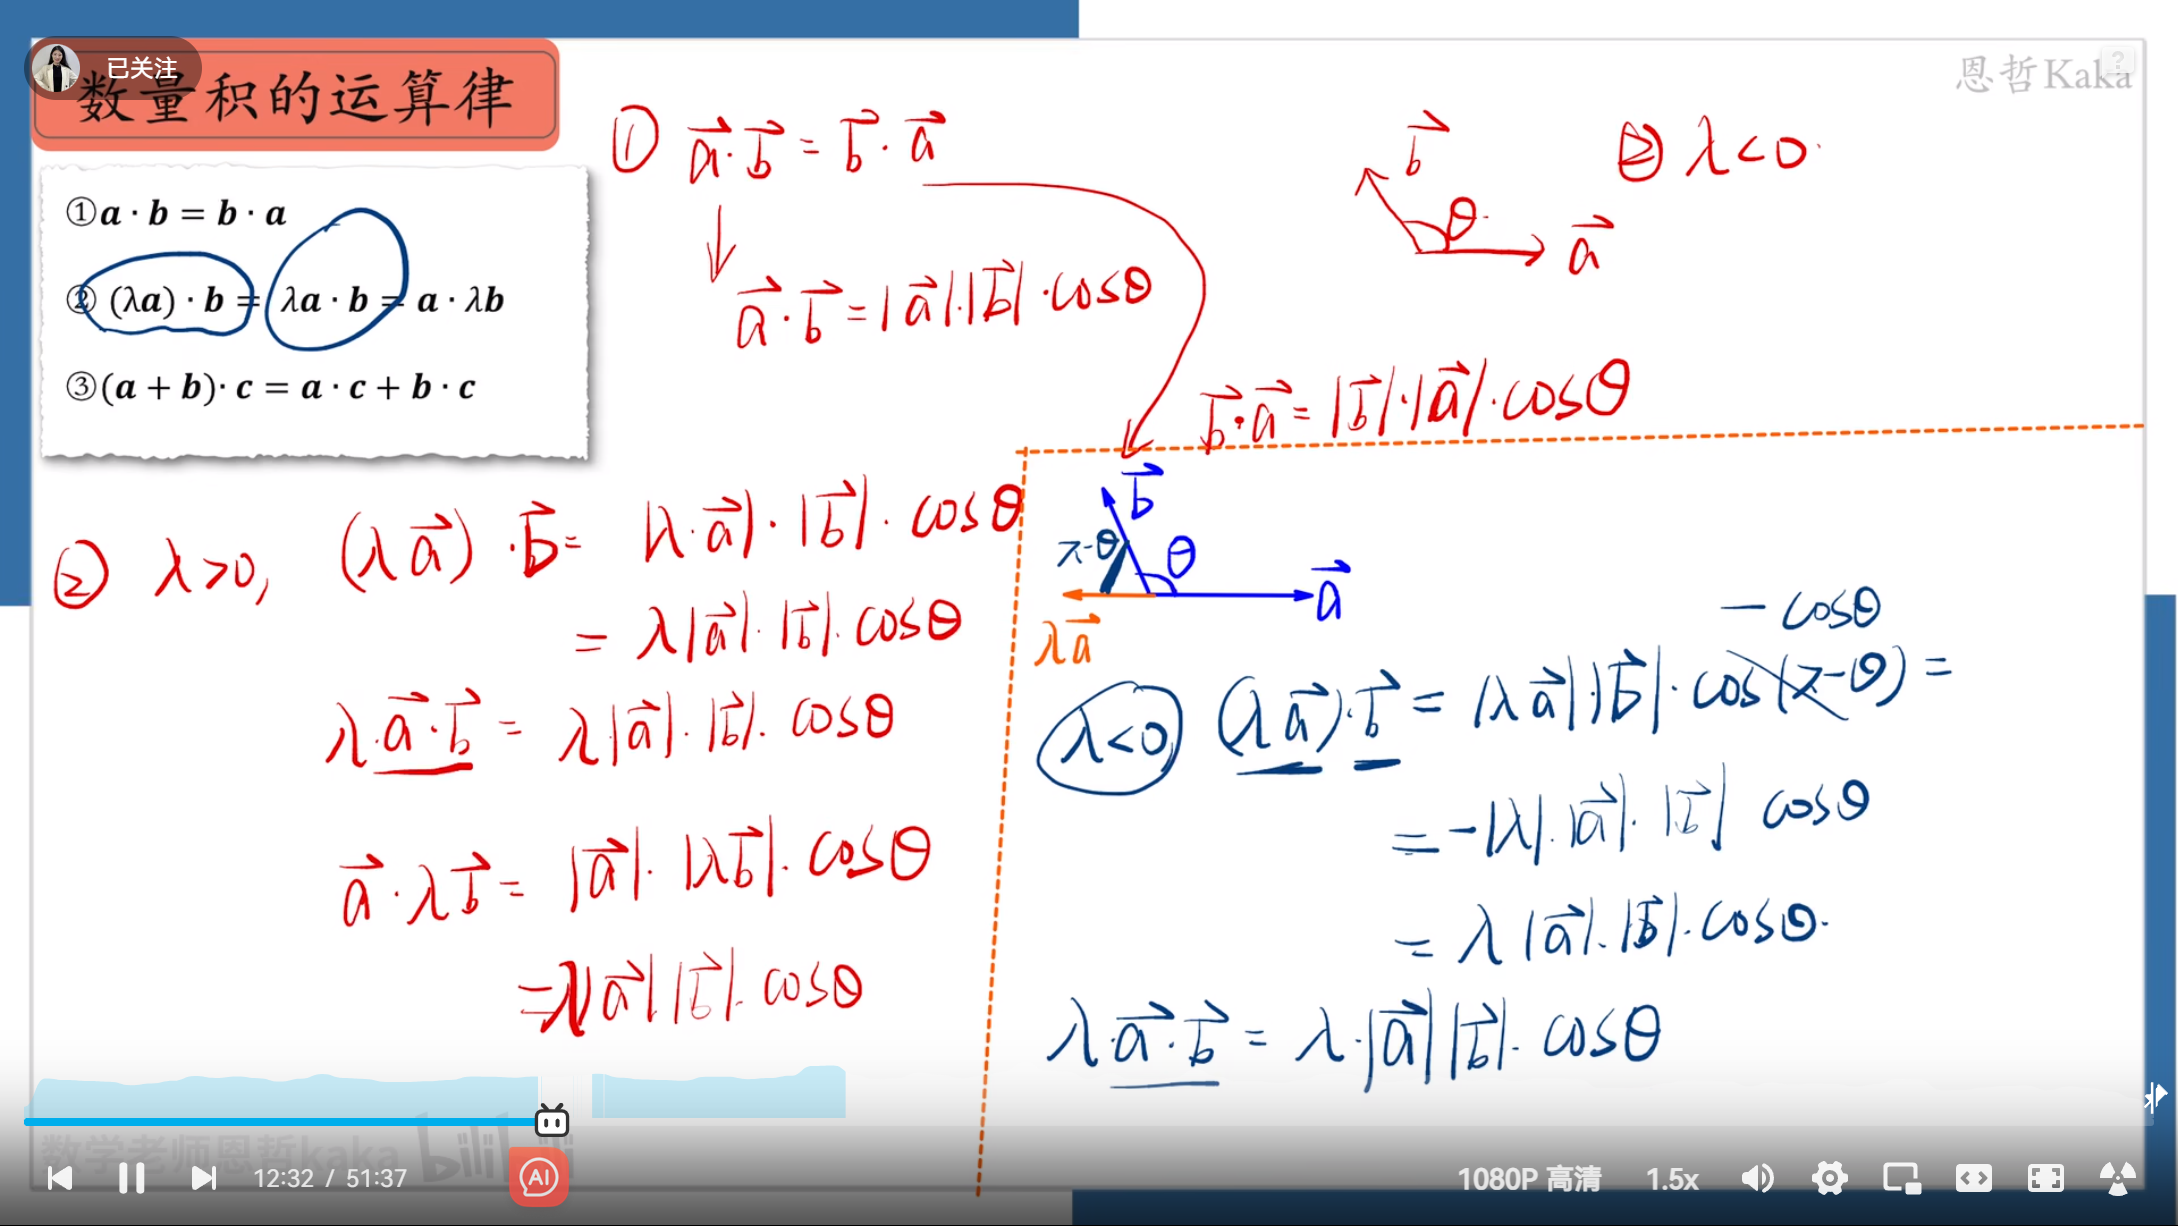 已关注
数量积的运算律
恩哲Kaka
①a · b = b · a
② (λa) · b = λa · b = a · λb
③(a + b)· c = a · c + b · c
① a⃗·b⃗ = b⃗·a⃗
a⃗·b⃗ = |a⃗|·|b⃗|·cosθ
b⃗
θ
a⃗
② λ<0
b⃗·a⃗ = |b⃗|·|a⃗|·cosθ
② λ>0, (λa⃗)·b⃗ = |λ·a⃗|·|b⃗|·cosθ
= λ|a⃗|·|b⃗|·cosθ
λ·a⃗·b⃗ = λ|a⃗|·|b⃗|·cosθ
a⃗·λb⃗ = |a⃗|·|λb⃗|·cosθ
=λ|a⃗||b⃗|·cosθ
b⃗
π-θ
θ
a⃗
λa⃗
-cosθ
λ<0 (λa⃗)·b⃗ = |λa⃗|·|b⃗|·cos(π-θ) =
= -|λ|·|a⃗|·|b⃗| cosθ
= λ|a⃗|·|b⃗|·cosθ
λ·a⃗·b⃗ = λ·|a⃗||b⃗|·cosθ
数学老师恩哲kaka bilibili
12:32 / 51:37
AI
1080P 高清
1.5x